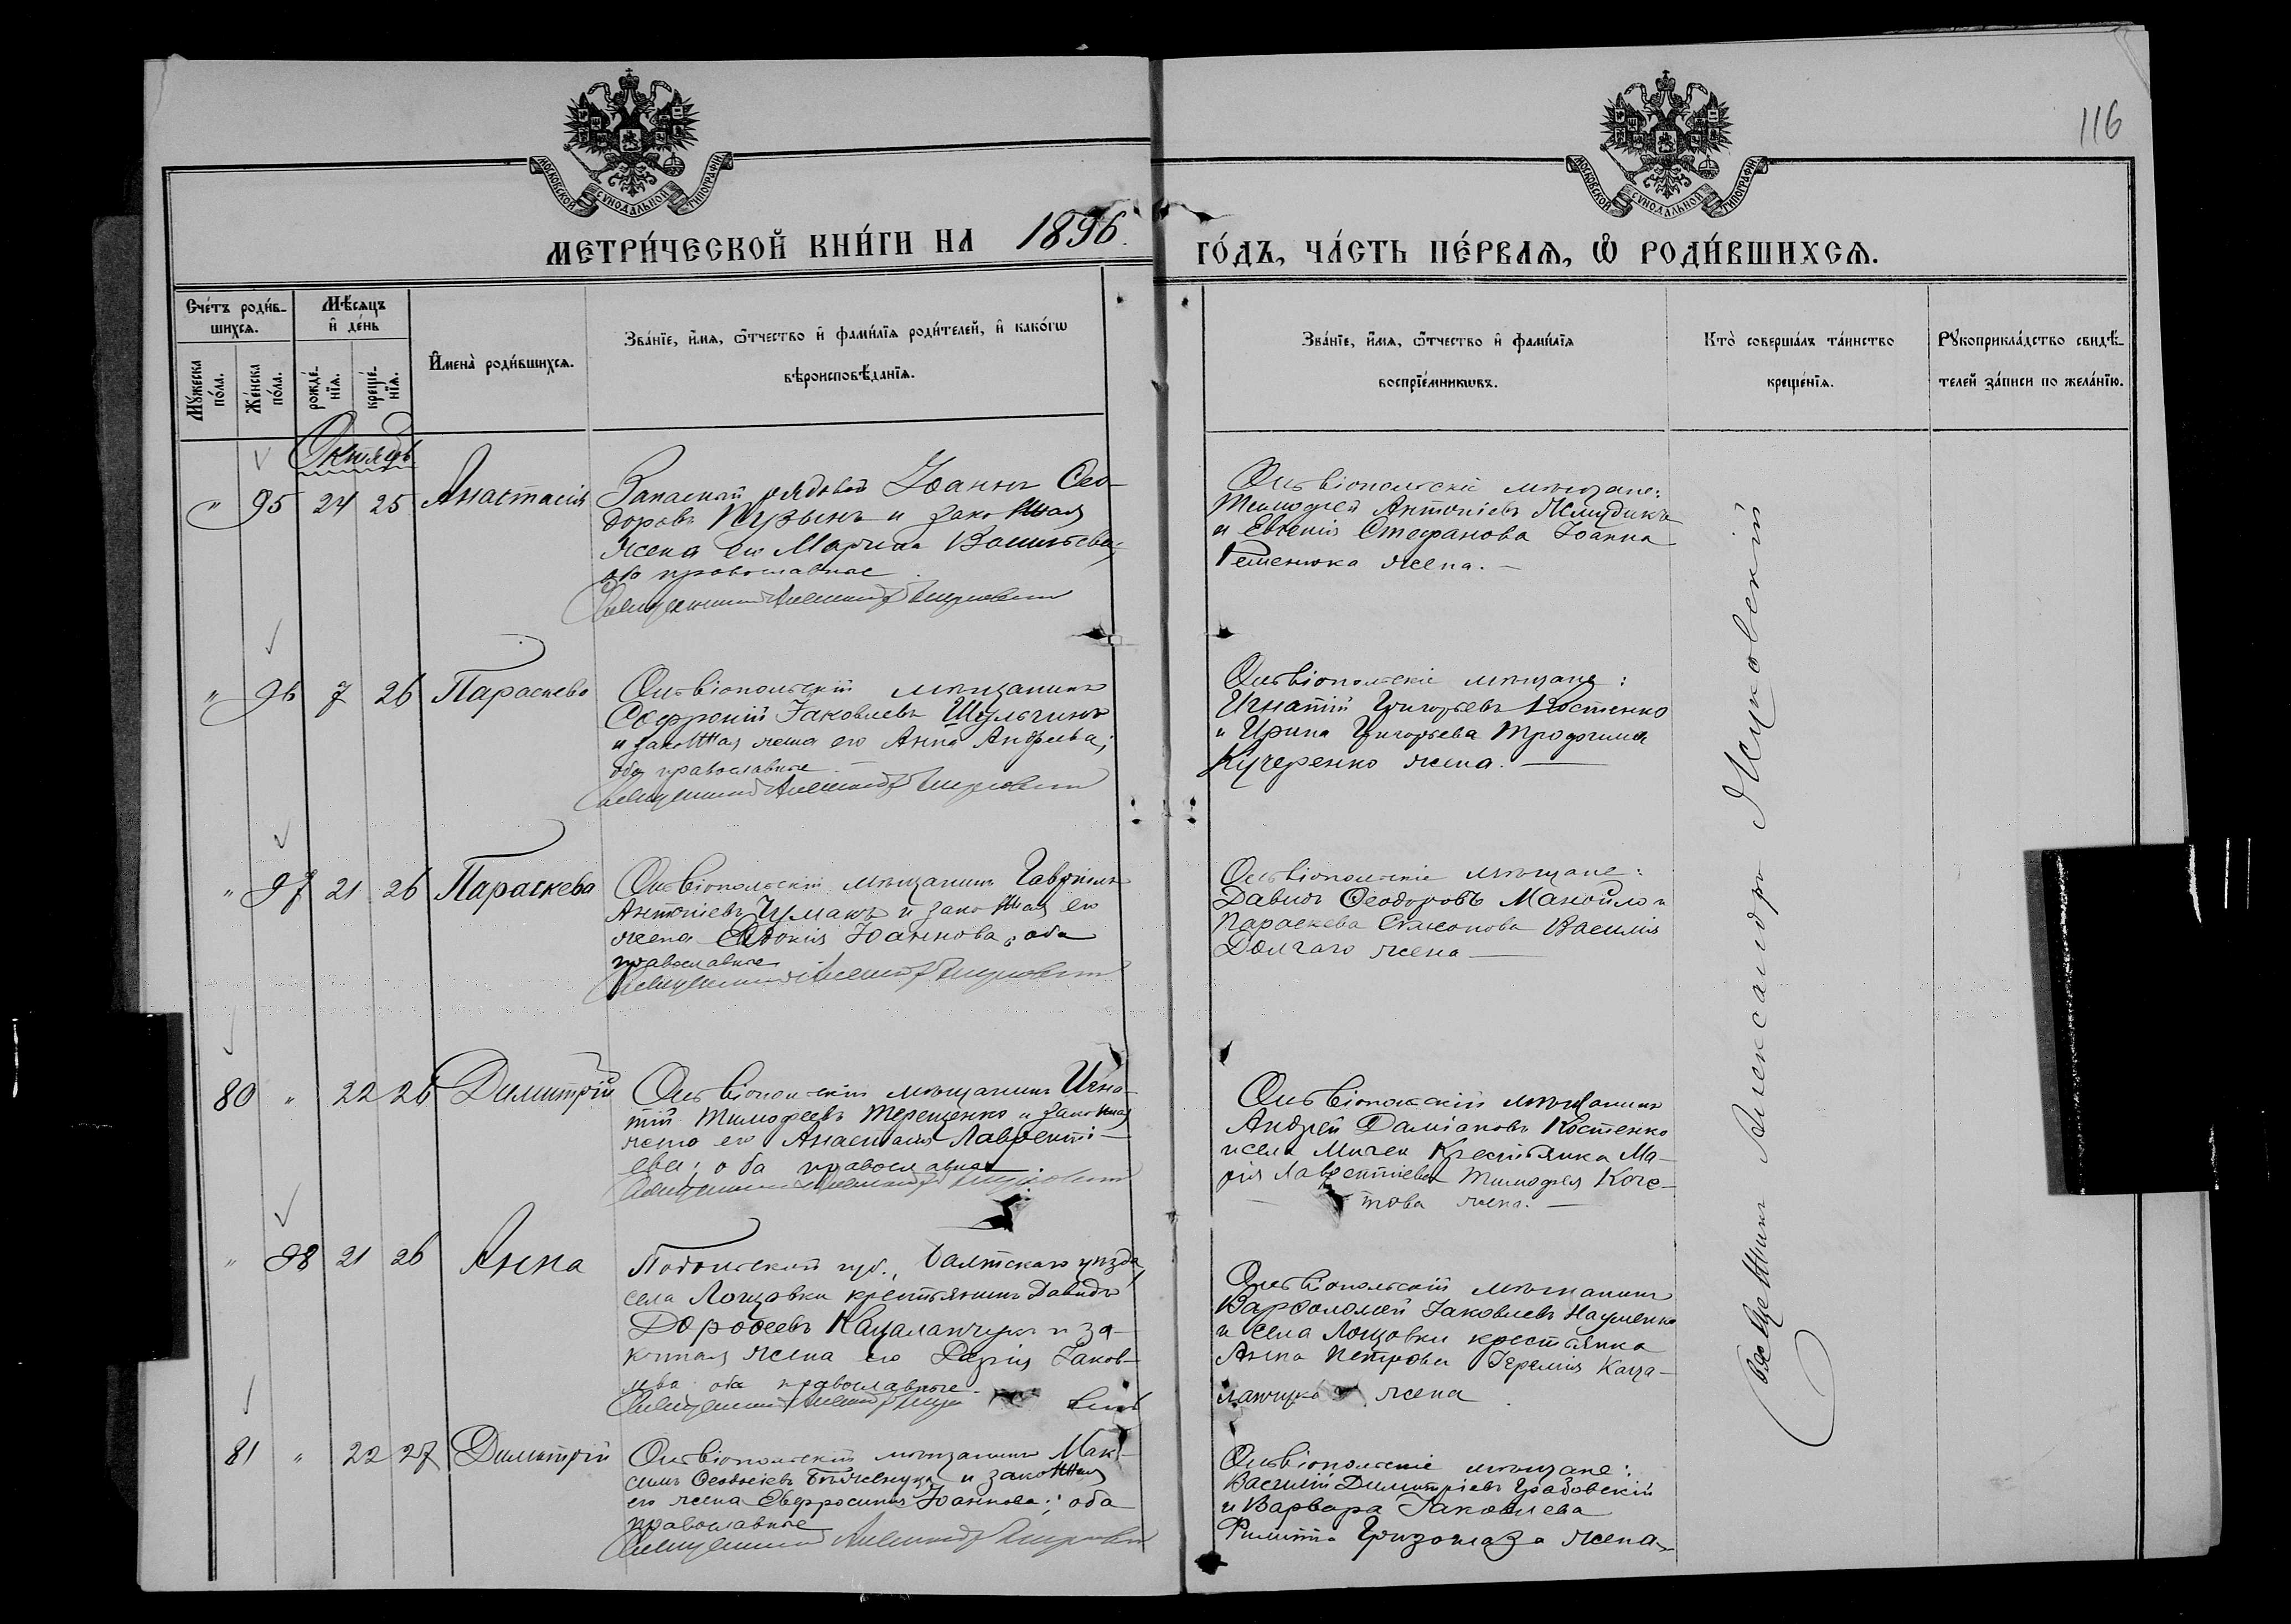 116
МОСКОВСКОЙ СѴНОДАЛЬНОЙ ТИПОГРАФІИ
МОСКОВСКОЙ СѴНОДАЛЬНОЙ ТИПОГРАФІИ
МЕТРИ́ЧЕСКОЙ КНИ́ГИ НА 1896.
ГО́ДЪ, ЧА́СТЬ ПЕ́РВАѦ, Ѡ РОДИ́ВШИХСѦ.
Сче́тъ роди́в-
шихсѧ.
Мѣ́сѧцъ
и де́нь
Мꙋ́жеска по́ла.
Же́нска по́ла.
рожде́-нїѧ.
креще́-нїѧ.
Имена̀ роди́вшихсѧ.
Зва́нїе, и́мѧ, ѻ҆́тчество и фами́лїѧ роди́телей, и како́гѡ
вѣроисповѣ́данїѧ.
Зва́нїе, и́мѧ, ѻ҆́тчество и фами́лїѧ
воспрїе́мникѡвъ.
Кто̀ соверша́лъ та́инство
креще́нїѧ.
Рꙋкоприкла́дство свидѣ́-
телей за́писи по жела́нїю.
Октябрь
" 95 24 25 Анастасія
Запасный рядовой Іоаннъ Ѳео-
доровъ Пузынъ и законная
жена его Марина Васильева;
оба православные
Священникъ Александръ Яцковскій
Ольвіопольскіе мѣщане:
Тимоѳей Антоніевъ
и Евгенія Стефанова Іоанна
жена.—
" 96 7 26 Параскева
Ольвіопольскій мѣщанинъ
Софроній Іаковлевъ Шульгинъ
и законная жена его Анна Андреева;
оба православные
Священникъ Александръ Яцковскій
Ольвіопольскіе мѣщане:
Игнатій Григорьевъ Костенко
и Ирина Григорьева Трофима
Кучеренко жена.—
" 97 21 26 Параскева
Ольвіопольскій мѣщанинъ Гавріилъ
Антоніевъ Чумакъ и законная его
жена Евдокія Іоаннова, оба
православные
Священникъ Александръ Яцковскій
Ольвіопольскіе мѣщане:
Давидъ Ѳеодоровъ Манойло и
Параскева Симеонова Василія
Долгаго жена—
80 " 22 26 Димитрій
Ольвіопольскій мѣщанинъ Игна-
тій Тимоѳеевъ Терещенко и законная
жена его Анастасія Лаврентi-
ева; оба православные
Священникъ Александръ Яцковскій
Ольвіопольскій мѣщанинъ
Андрей Даміановъ Костенко
и села Мигеи Крестьянка Ма-
рія Лаврентіева Тимоѳея Коче-
това жена.—
" 98 21 26 Анна
Подольской губ., Балтскаго уѣзда,
села Лощовки крестьянинъ Давидъ
Дороѳеевъ Кацаланчукъ и за-
конная жена его Дарія Іаков-
лева оба православные
Священникъ Александръ Яцковскій
Ольвіопольскій мѣщанинъ
Варѳоломей Іаковлевъ Науменко
и села Лощовки крестьянка
Анна Петрова Іеремія Каца-
ланчука жена
81 " 22 27 Димитрій
Ольвіопольскій мѣщанинъ Мак-
симъ Ѳеодосіевъ и законная
его жена Евфросинія Іоаннова; оба
православные
Священникъ Александръ Яцковскій
Ольвіопольскіе мѣщане:
Василій Димитріевъ Грабовскій
и Варвара Іаковлева
Филиппа жена.
Священникъ Александръ Яцковскій